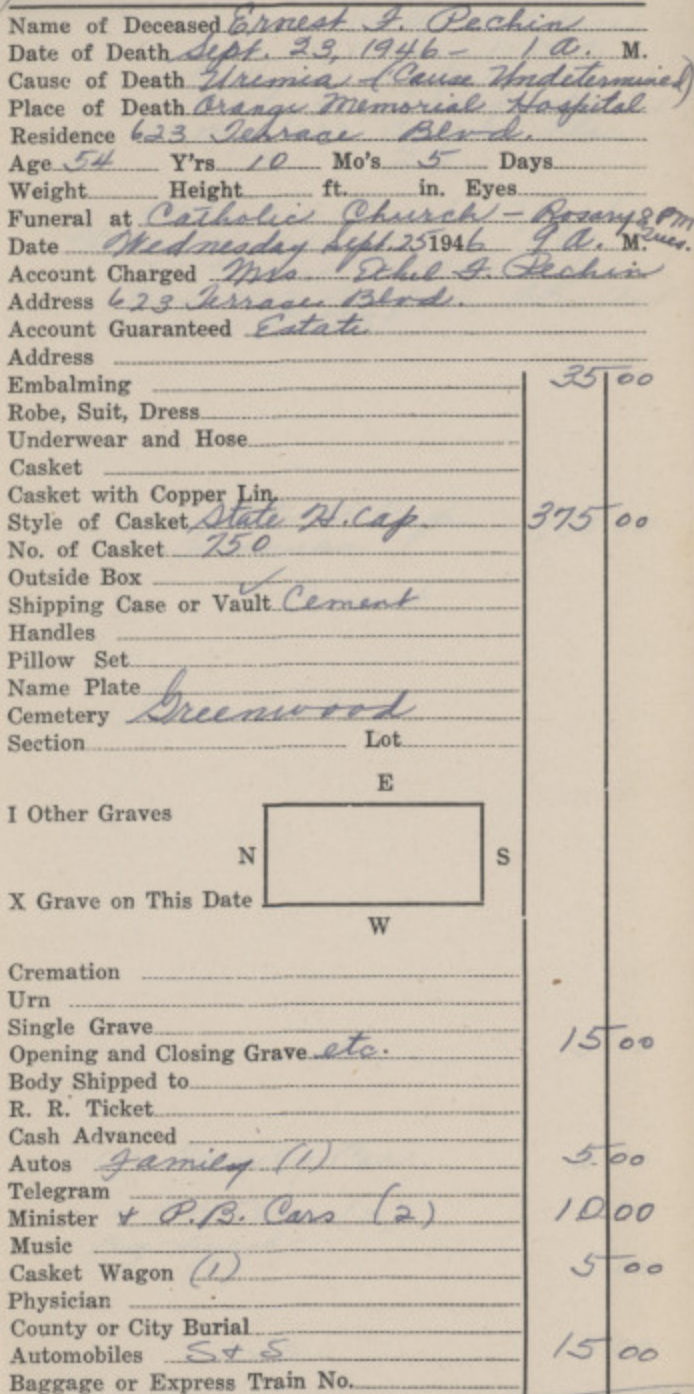 Name of Deceased Ernest F. Pechin
Date of Death Sept. 23, 1946 - 1 A. M.
Cause of Death Uremia - (Cause Undetermined)
Place of Death Orange Memorial Hospital
Residence 623 Terrace Blvd.
Age 54 Y'rs 10 Mo's 5 Days
Weight Height ft. in. Eyes
Funeral at Catholic Church - Rosary 8 PM Tues.
Date Wednesday Sept. 25 1946 9 A. M.
Account Charged Mrs Ethel F. Pechin
Address 623 Terrace Blvd.
Account Guaranteed Estate
Address
Embalming 35 00
Robe, Suit, Dress
Underwear and Hose
Casket
Casket with Copper Lin.
Style of Casket State H. Cap. 375 00
No. of Casket 750
Outside Box
Shipping Case or Vault Cement
Handles
Pillow Set
Name Plate
Cemetery Greenwood
Section Lot
E
I Other Graves
N S
X Grave on This Date
W
Cremation
Urn
Single Grave
Opening and Closing Grave etc. 15 00
Body Shipped to
R. R. Ticket
Cash Advanced
Autos Family (1) 5 00
Telegram
Minister + P.B. Cars (2) 10 00
Music
Casket Wagon (1) 5 00
Physician
County or City Burial
Automobiles S + S 15 00
Baggage or Express Train No.